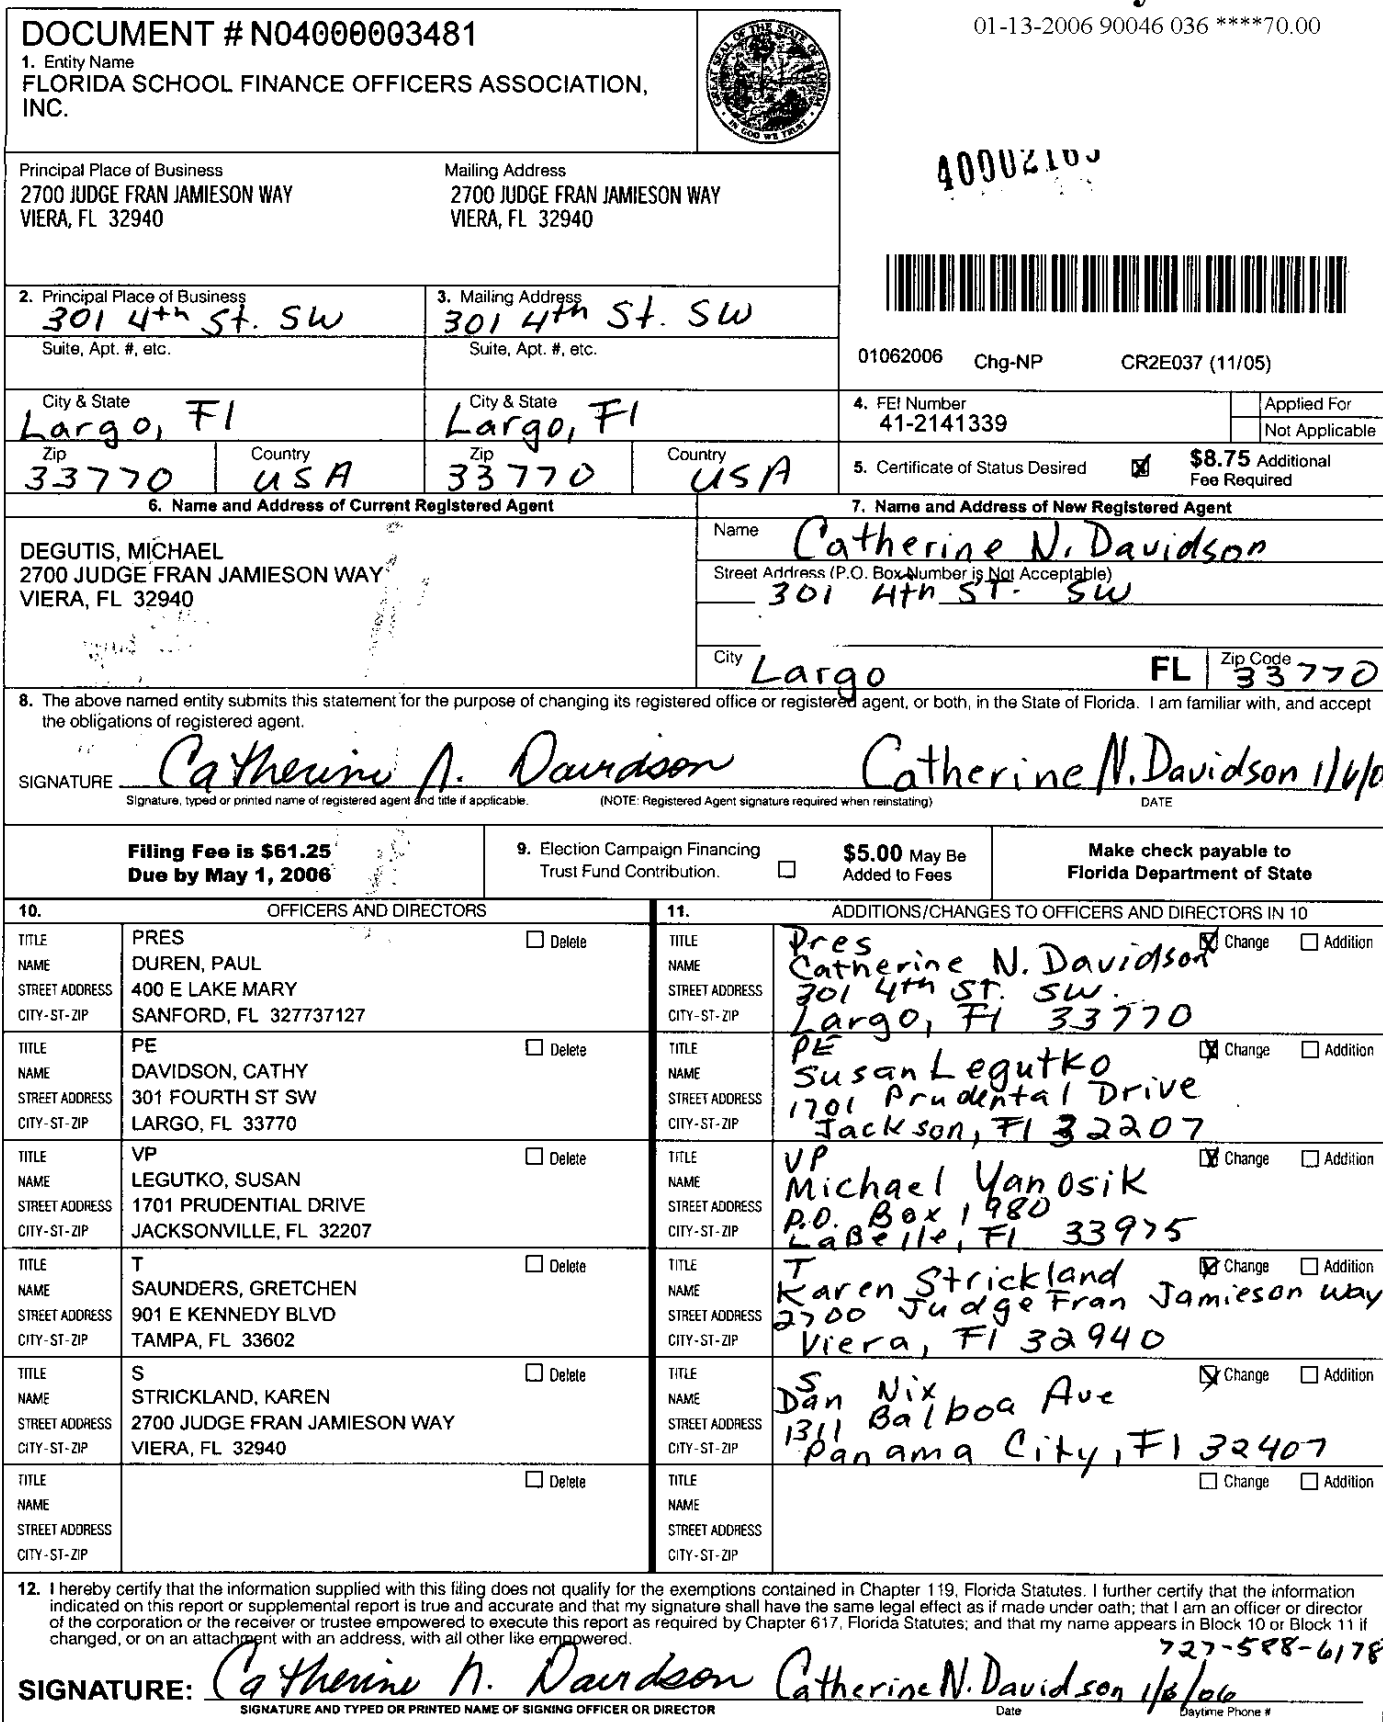 01-13-2006 90046 036 ****70.00
DOCUMENT # N04000003481
1. Entity Name
FLORIDA SCHOOL FINANCE OFFICERS ASSOCIATION,
INC.
GREAT SEAL OF THE STATE OF FLORIDA
IN GOD WE TRUST
Principal Place of Business
2700 JUDGE FRAN JAMIESON WAY
VIERA, FL 32940
Mailing Address
2700 JUDGE FRAN JAMIESON WAY
VIERA, FL 32940
2. Principal Place of Business
301 4th St. SW
3. Mailing Address
301 4th St. SW
Suite, Apt. #, etc.
Suite, Apt. #, etc.
01062006 Chg-NP CR2E037 (11/05)
City & State
Largo, Fl
City & State
Largo, Fl
4. FEI Number
41-2141339
Applied For
Not Applicable
Zip
33770
Country
USA
Zip
33770
Country
USA
5. Certificate of Status Desired
$8.75 Additional
Fee Required
6. Name and Address of Current Registered Agent
DEGUTIS, MICHAEL
2700 JUDGE FRAN JAMIESON WAY
VIERA, FL 32940
7. Name and Address of New Registered Agent
Name Catherine N. Davidson
Street Address (P.O. Box Number is Not Acceptable)
301 4th ST. SW
City Largo FL Zip Code 33770
8. The above named entity submits this statement for the purpose of changing its registered office or registered agent, or both, in the State of Florida. I am familiar with, and accept
the obligations of registered agent.
SIGNATURE Catherine N. Davidson Catherine N. Davidson 1/6/0
Signature, typed or printed name of registered agent and title if applicable. (NOTE: Registered Agent signature required when reinstating) DATE
Filing Fee is $61.25
Due by May 1, 2006
9. Election Campaign Financing
Trust Fund Contribution.
$5.00 May Be
Added to Fees
Make check payable to
Florida Department of State
10. OFFICERS AND DIRECTORS
TITLE PRES Delete
NAME DUREN, PAUL
STREET ADDRESS 400 E LAKE MARY
CITY-ST-ZIP SANFORD, FL 327737127
TITLE PE Delete
NAME DAVIDSON, CATHY
STREET ADDRESS 301 FOURTH ST SW
CITY-ST-ZIP LARGO, FL 33770
TITLE VP Delete
NAME LEGUTKO, SUSAN
STREET ADDRESS 1701 PRUDENTIAL DRIVE
CITY-ST-ZIP JACKSONVILLE, FL 32207
TITLE T Delete
NAME SAUNDERS, GRETCHEN
STREET ADDRESS 901 E KENNEDY BLVD
CITY-ST-ZIP TAMPA, FL 33602
TITLE S Delete
NAME STRICKLAND, KAREN
STREET ADDRESS 2700 JUDGE FRAN JAMIESON WAY
CITY-ST-ZIP VIERA, FL 32940
TITLE Delete
NAME
STREET ADDRESS
CITY-ST-ZIP
11. ADDITIONS/CHANGES TO OFFICERS AND DIRECTORS IN 10
TITLE Pres Change Addition
NAME Catherine N. Davidson
STREET ADDRESS 301 4th ST. SW.
CITY-ST-ZIP Largo, Fl 33770
TITLE PE Change Addition
NAME Susan Legutko
STREET ADDRESS 1701 Prudental Drive
CITY-ST-ZIP Jackson, Fl 32207
TITLE VP Change Addition
NAME Michael Yanosik
STREET ADDRESS P.O. Box 1980
CITY-ST-ZIP LaBelle, Fl 33975
TITLE T Change Addition
NAME Karen Strickland
STREET ADDRESS 2700 Judge Fran Jamieson Way
CITY-ST-ZIP Viera, Fl 32940
TITLE S Change Addition
NAME Dan Nix
STREET ADDRESS 1311 Balboa Ave
CITY-ST-ZIP Panama City, Fl 32407
TITLE Change Addition
NAME
STREET ADDRESS
CITY-ST-ZIP
12. I hereby certify that the information supplied with this filing does not qualify for the exemptions contained in Chapter 119, Florida Statutes. I further certify that the information
indicated on this report or supplemental report is true and accurate and that my signature shall have the same legal effect as if made under oath; that I am an officer or director
of the corporation or the receiver or trustee empowered to execute this report as required by Chapter 617, Florida Statutes; and that my name appears in Block 10 or Block 11 if
changed, or on an attachment with an address, with all other like empowered.
727-588-6178
SIGNATURE: Catherine N. Davidson Catherine N. Davidson 1/6/06
SIGNATURE AND TYPED OR PRINTED NAME OF SIGNING OFFICER OR DIRECTOR Date Daytime Phone #